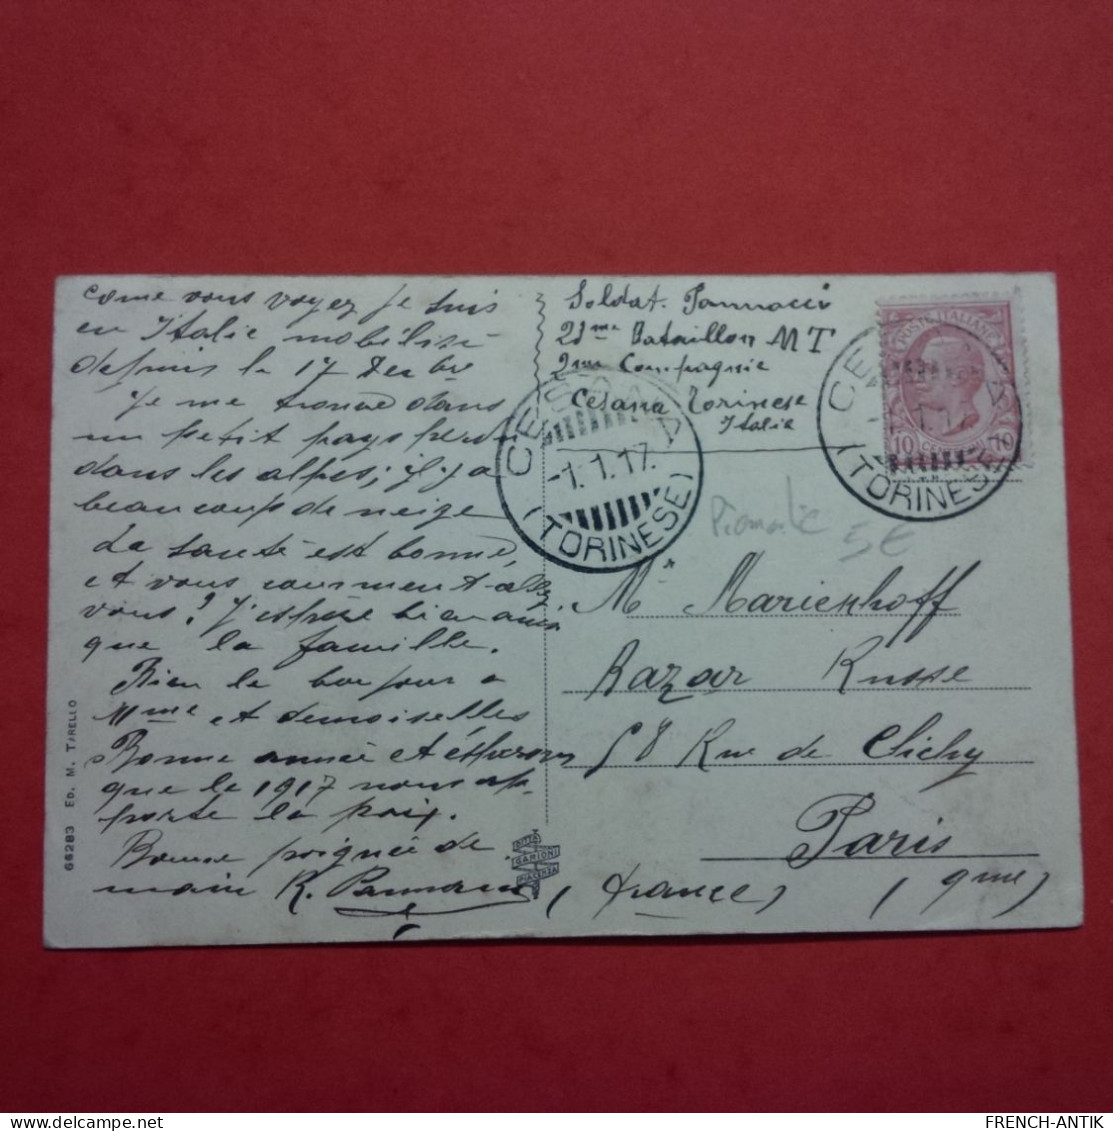 come vous voyez je suis
en Italie mobilisé
depuis le 17 Decbre
Je me trouve dans
un petit pays perdu
dans les alpes; il y a
beaucoup de neige
La santé est bonne,
et vous comment allez
vous? J'espère bien ainsi
que la famille.
Bien le bonjour a
Mme et demoiselles
Bonne année et espérons
que le 1917 nous ap
porte la paix.
Bonne poignée de
main R. Pannacci
Soldat. Pannacci
21me Bataillon MT
2me Compagnie
Cesana Torinese
Italie
CESANA
-1.1.17.
(TORINESE)
POSTE ITALIANE
10 10
CESANA
(TORINESE)
Piemonte
5€
Mr Marienhoff
Bazar Russe
58 Rue de Clichy
Paris
(France) (9me)
66283 ED. M. TARELLO
DITTA
GARIONI
PIACENZA
FRENCH-ANTIK